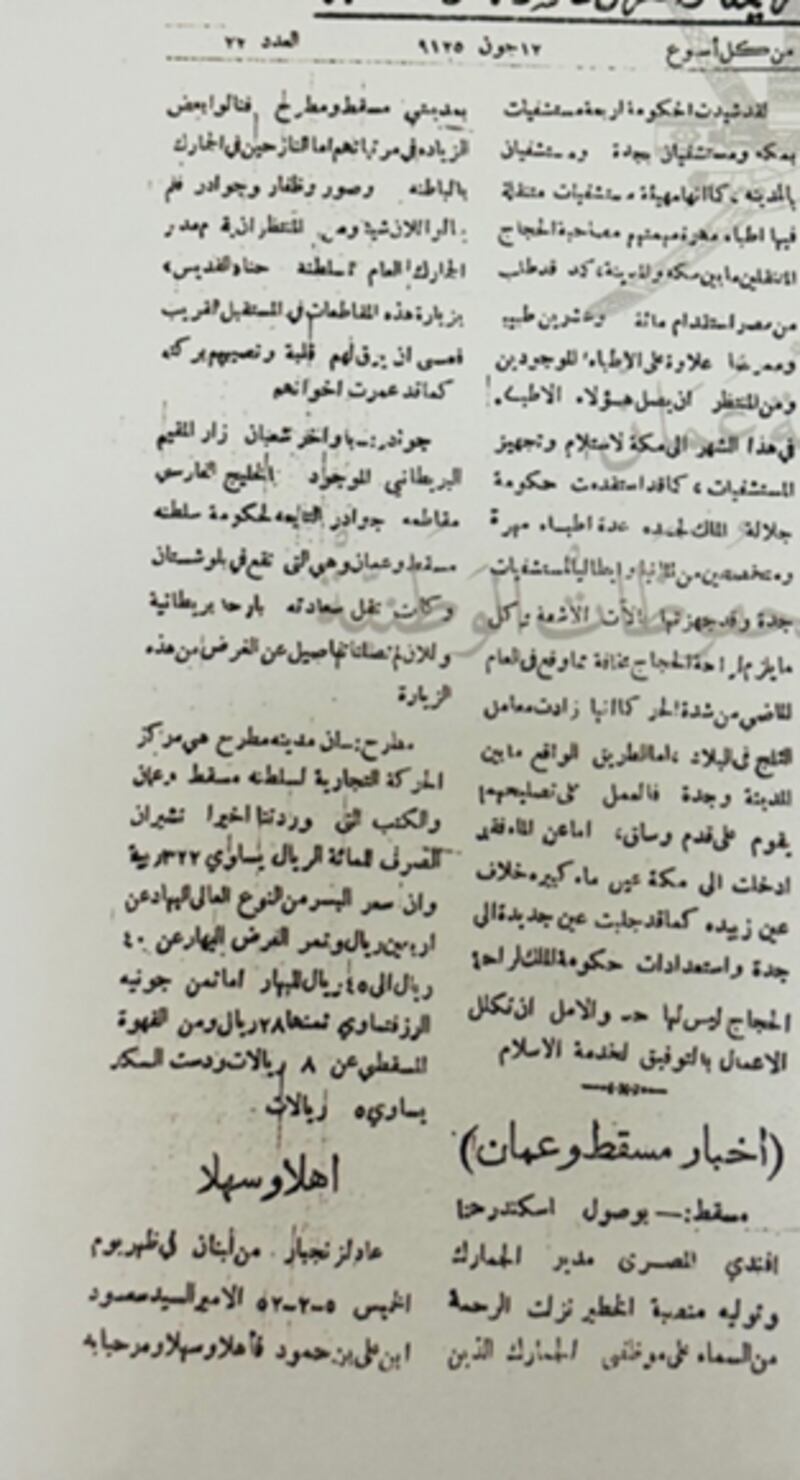 من كل أسبوع
١٢ جون ٩١٢٥
العدد ٢٢
لقد شيدت الحكومة اربعة مستشفيات
بمكه ومستشفيان بجدة ومستشفيان
بالمدينه ، كما انها مهيئة مستشفيات متنقلة
فيها اطباء مهرة مهمتهم مصاحبة الحجاج
المتنقلين ما بين مكه والمدينة ، قد طلب
من مصر استقدام مائة وعشرين طبيبا
وممرضا علاوة على الاطباء الموجودين
ومن المنتظر ان يصل هؤلاء الاطباء
في هذا الشهر الى مكة لاستلام وتجهيز
المستشفيات ، كما قد استقدمت حكومة
جلالة الملك لجده عدة اطباء مهرة
ومتخصصين من المانيا وايطاليا لمستشفيات
جدة وقد جهزتها بالآت الاشعة وكل
ما يلزم لراحة الحجاج مخافة مما وقع في العام
الماضي من شدة الحر كما انها زادت معامل
الثلج في البلاد ، اما الطريق الواقع ما بين
المدينة وجدة فالعمل على تصليحهم
يقوم على قدم وساق، اما عن الماء فقد
ادخلت الى مكة عين ماء كبيره خلاف
عين زبيده كما قد جلبت عين جديدة الى
جدة واستعدادات حكومة الملك لراحة
الحجاج ليس لها حد والامل ان تكلل
الاعمال بالتوفيق لخدمة الاسلام
(أخبار مسقط وعمان)
مسقط :— بوصول اسكندر حنا
افندي المصرى مدير الجمارك
وتوليه منصبة الخطير نزلت الرحمة
من السماء على موظفى الجمارك الذين
بمدينتي مسقط ومطرح فنالوا بعض
الزياده في مرتباتهم اما النازحين في الجمارك
بالباطنه وصور وظفار وجوادر فلم
ينالوا للان شيئا ومن المنتظر ان مدير
الجمارك العام لسلطنة حنا والقديس
بزيارة هذه المقاطعات في المستقبل القريب
فعسى ان يرق لهم قلبة وتصيبهم بركته
كما قد عمرت اخوانهم
جوادر:ـ باواخر شعبان زار المقيم
البريطاني الموجود الخليج الفارسي
مقاطعه جوادر التابعه لحكومة سلطنه
مسقط وعمان وهي التى تقع في بلوشستان
وكانت تقل سعادته بارجا بريطانية
وللان لم تصلنا تفاصيل عن الغرض من هذه
الزيارة
مطرح :ـ ان مدينه مطرح هي مركز
الحركة التجارية لسلطنه مسقط وعمان
والكتب التى وردتنا اخيرا تشيران
الصرف المائة الريال يساوي ٣٢٢ ربية
وان سعر البسر من النوع العالى البهار عن
اربعين ريال وتمر الفرض البهار عن ٤٠
ريال الى ٤٥ ريال البهار اما ثمن جونيه
الرز فتساوي ثمنها ٢٨ ريال ومن القهوة
المسقطي عن ٨ ريالات ودست السكر
يساوي ٥ ريالات
اهلا وسهلا
عاد لزنجبار من لبنان في ظهر يوم
الخميس ٥-٢-٥٢ الامير السيد سعود
ابن على بن حمود فأهلا وسهلا ومرحبا به